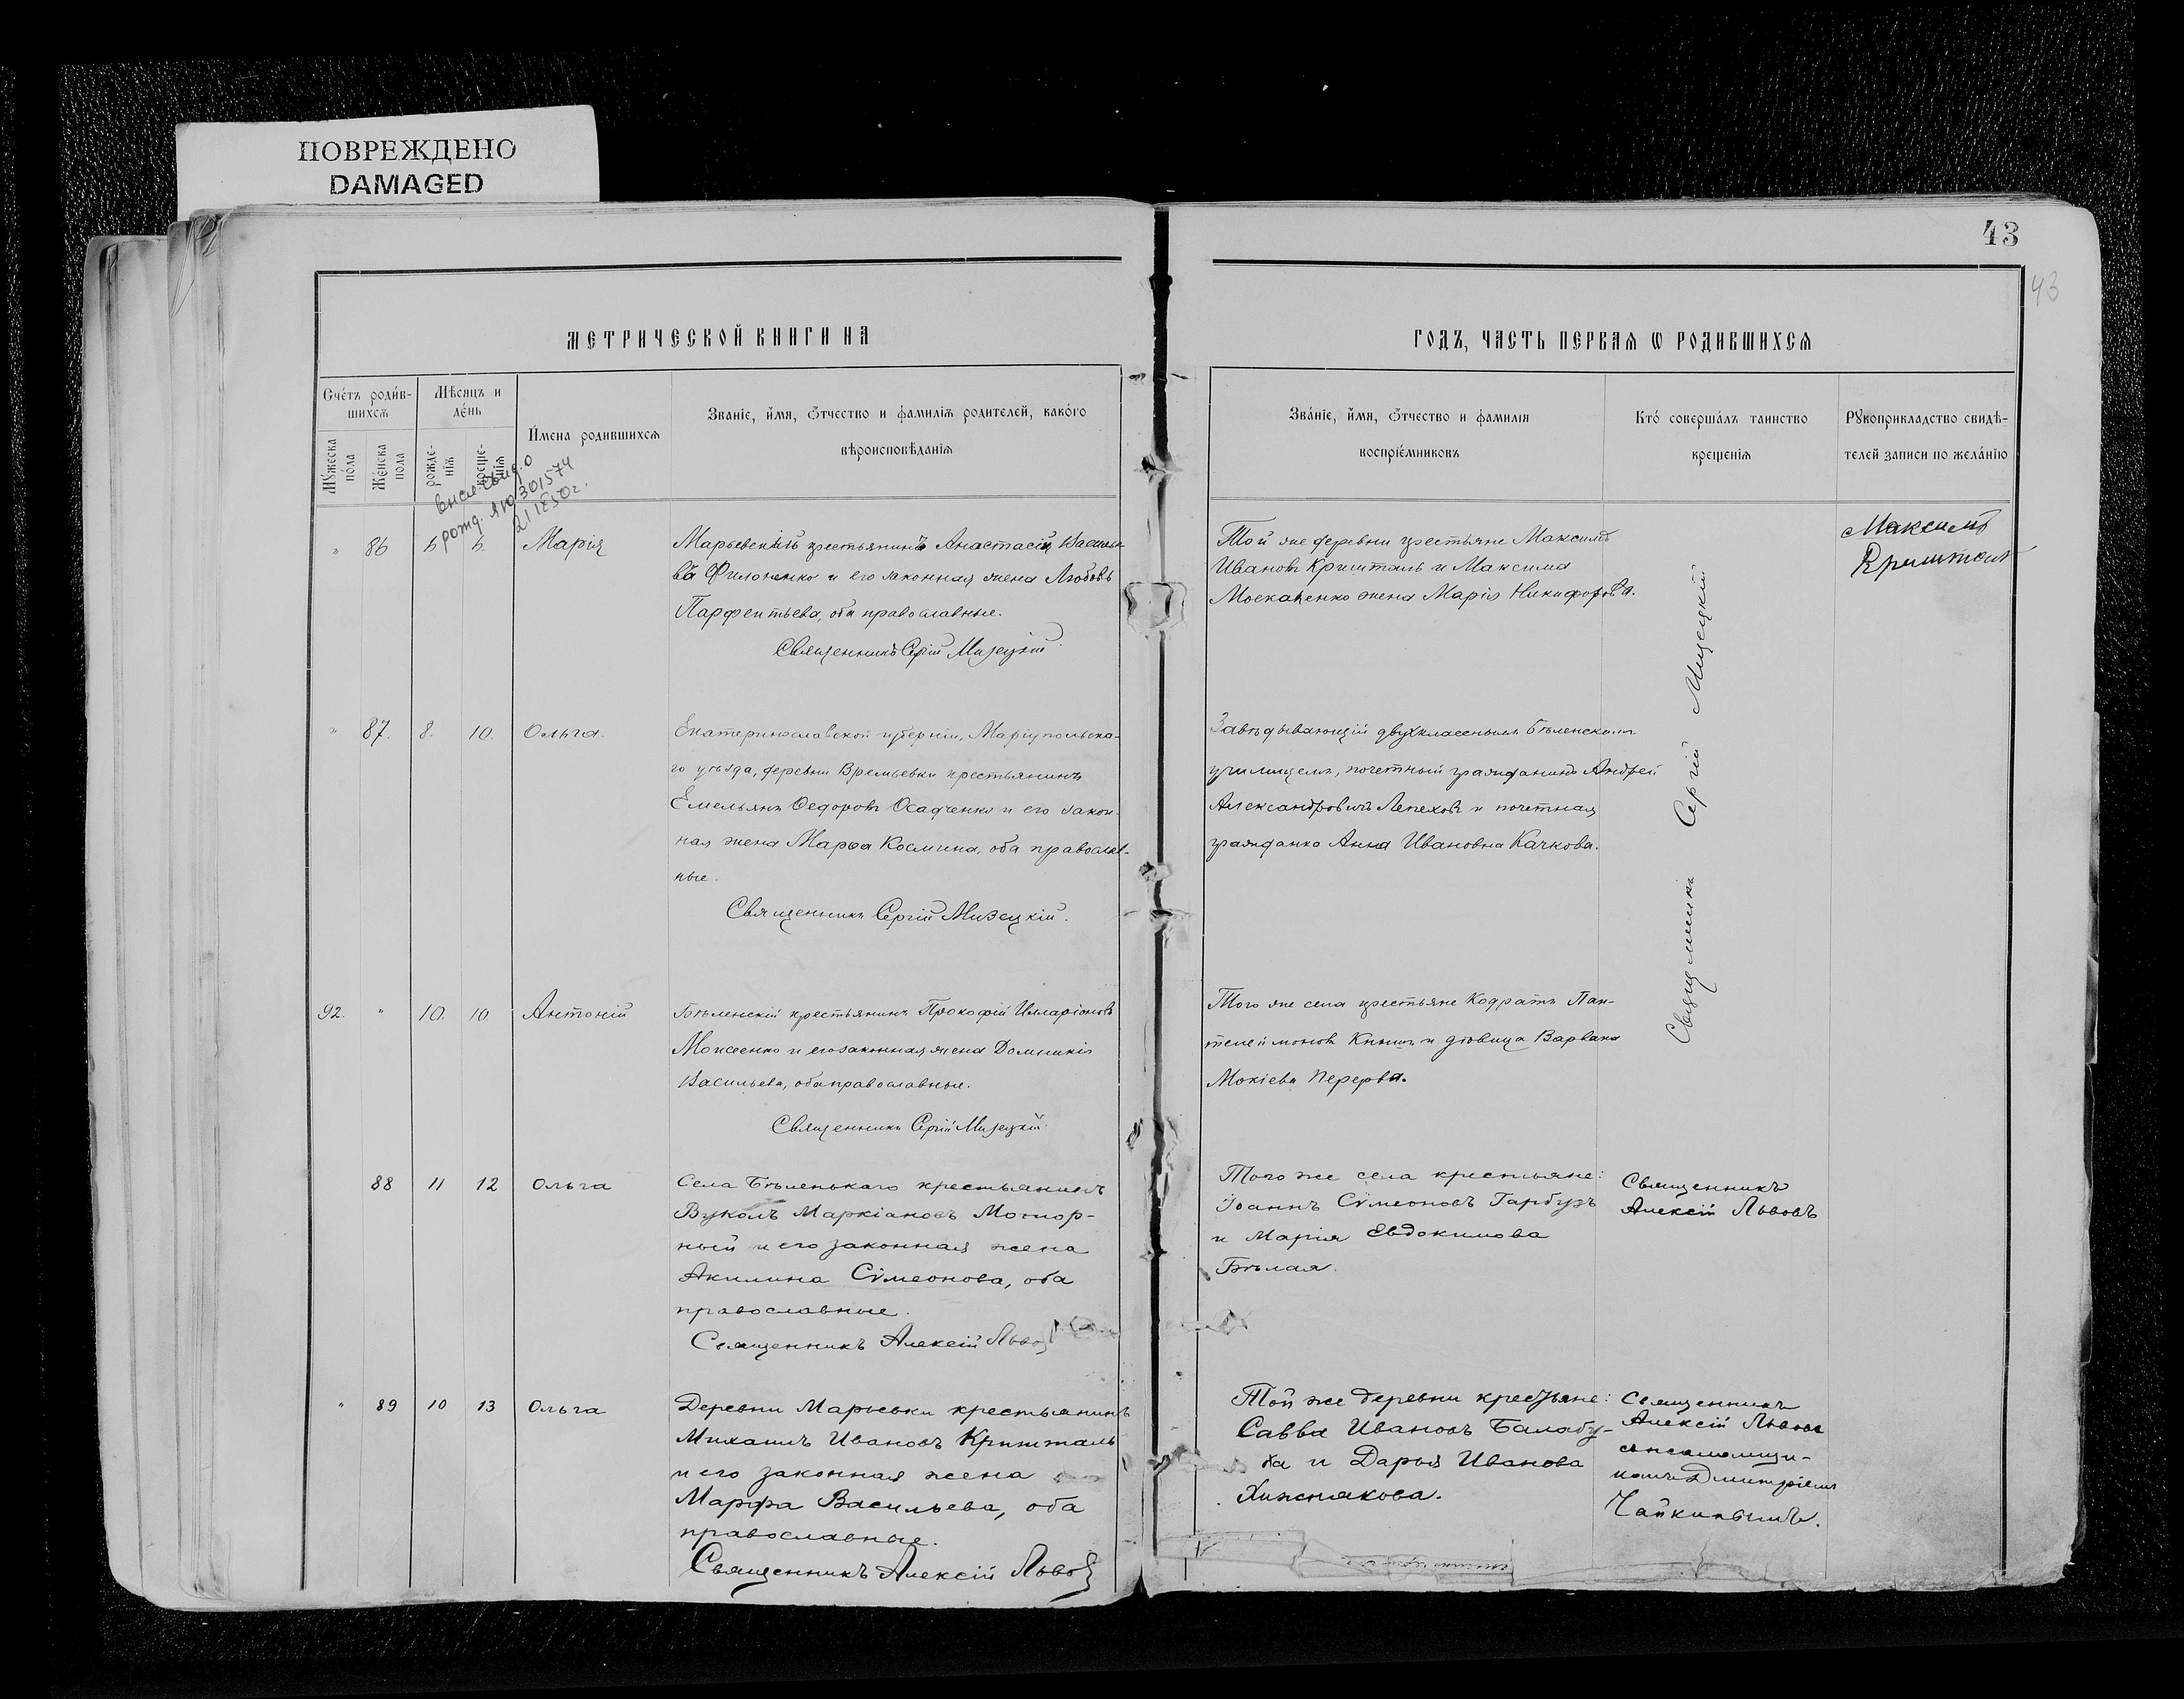 ПОВРЕЖДЕНО
DAMAGED
43
43
МЕТРИЧЕСКОЙ КНИГИ НА
ГОДЪ, ЧАСТЬ ПЕРВАЯ Ѡ РОДИВШИХСЯ
Счётъ родив-
шихся
Мѣсяцъ и
день
Имена родившихся
Званіе, имя, Ѿчество и фамилія родителей, какого
вѣроисповѣданія
Мужеска
пола
Женска
пола
рожде-
нія
креще-
нія
Званіе, имя, Ѿчество и фамилія
воспріемниковъ
Кто совершалъ таинство
крещенія
Рукоприкладство свидѣ-
телей записи по желанію
рожд. 301574
" 86 5 5. Марія
Марьевскій крестьянинъ Анастасій Василье-
въ Филоненко и его законная жена Любовь
Парфентьева, оба православные.
Священникъ Сергій Мизецкій
Той же деревни крестьяне Максимъ
Ивановъ Кришталь и Максима
Москаленко жена Марія Никифорова.
Максимъ
Кришталь
Священникъ Сергій Мизецкій
" 87. 8. 10. Ольга.
Екатеринославской губерніи, Маріупольска-
го уѣзда, деревни Времьевки крестьянинъ
Емельянъ Ѳедоровъ Осадченко и его закон-
ная жена Марѳа Космина, оба православ-
ные.
Священникъ Сергій Мизецкій.
Завѣдывающій двухкласснымъ Бѣленскимъ
училищемъ, почетный гражданинъ Андрей
Александровичъ Лепеховъ и почетная
гражданка Анна Ивановна Качкова.
92. " 10. 10. Антоній
Бѣленскій крестьянинъ Прокофій Илларіоновъ
Моисеенко и его законная жена Домникія
Васильева, оба православные.
Священникъ Сергій Мизецкій
Того же села крестьяне Кодратъ Пан-
телеймоновъ Книшъ и дѣвица Варвара
Мокіева Перерва.
88 11 12 Ольга
Села Бѣленькаго крестьянинъ
Вуколъ Маркіановъ Мотор-
ный и его законная жена
Акилина Сѵмеонова, оба
православные.
Священникъ Алексій Львов
Того же села крестьяне:
Іоаннъ Сѵмеоновъ Гарбузъ
и Марія Евдокимова
Бѣлая.
Священникъ
Алексій Львовъ
" 89 10 13 Ольга
Деревни Марьевки крестьянинъ
Михаилъ Ивановъ Кришталь
и его законная жена
Марфа Васильева, оба
православные.
Священникъ Алексій Львов
Той же деревни крестьяне:
Савва Ивановъ Балабу-
ха и Дарья Иванова
Хижнякова.
Священникъ
Алексій Львовъ
съ псаломщи-
комъ Дмитріемъ
Чайкинымъ.